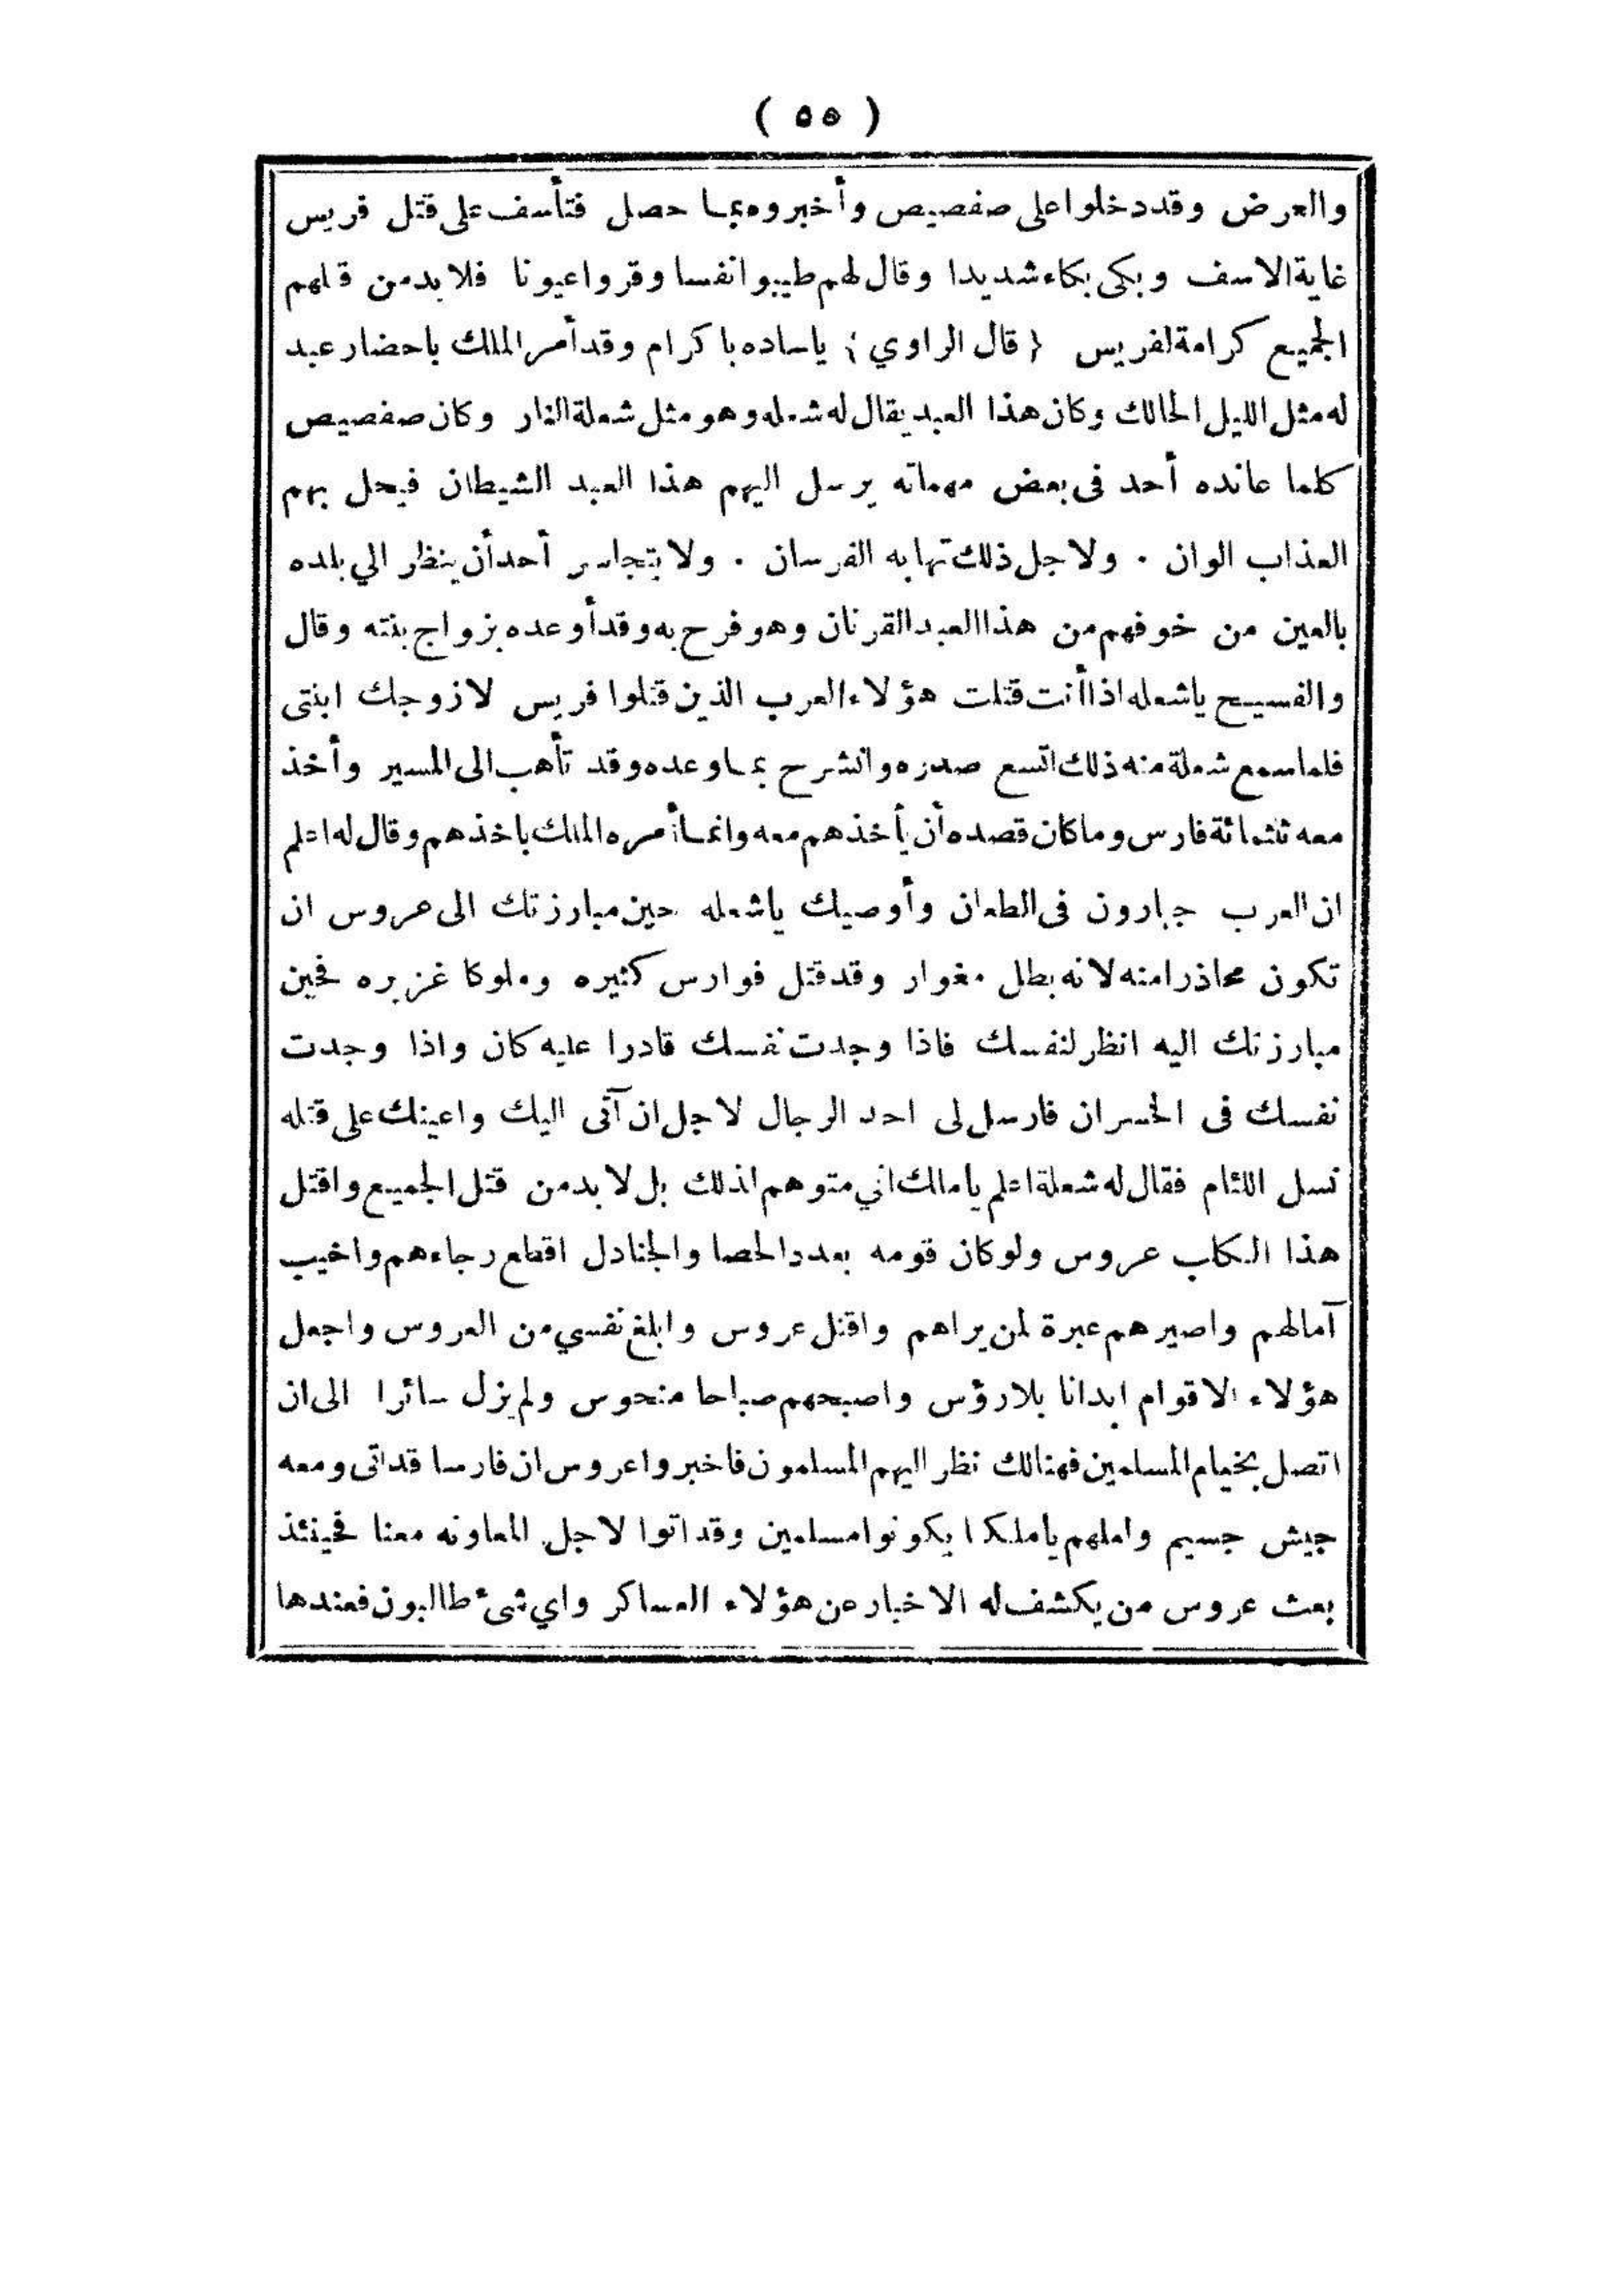 ( ٥٥ )
والعرض وقد دخلوا على صفصيص وأخبروه بما حصل فتأسف على قتل فريس
غاية الاسف وبكى بكاء شديدا وقال لهم طيبوا نفسا وقروا عيونا فلا بد من قتلهم
الجميع كرامة لفريس { قال الراوي } ياساده باكرام وقد أمر الملك باحضار عبد
له مثل الليل الحالك وكان هذا العبد يقال له شعله وهو مثل شعلة النار وكان صفصيص
كلما عانده أحد فى بعض مهماته يرسل اليهم هذا العبد الشيطان فيحل بهم
العذاب الوان . ولاجل ذلك تهابه الفرسان . ولا يتجاسر أحد أن ينظر الي بلده
بالعين من خوفهم من هذا العبد القرنان وهو فرح به وقد أوعده بزواج بنته وقال
والفسيح ياشعله اذا أنت قتلت هؤلاء العرب الذين قتلوا فريس لازوجك ابنتى
فلما سمع شعلة منه ذلك اتسع صدره وانشرح بما وعده وقد تأهب الى المسير وأخذ
معه ثلثمائة فارس وما كان قصده أن يأخذهم معه وانما أمره الملك باخذهم وقال له اعلم
ان العرب جبارون فى الطعان وأوصيك ياشعله حين مبارزتك الى عروس ان
تكون محاذرا منه لانه بطل مغوار وقد قتل فوارس كثيره وملوكا غزيره فحين
مبارزتك اليه انظر لنفسك فاذا وجدت نفسك قادرا عليه كان واذا وجدت
نفسك فى الخسران فارسل لى احد الرجال لاجل ان آتى اليك واعينك على قتله
نسل اللئام فقال له شعلة اعلم يا مالك اني متوهم لذلك بل لا بد من قتل الجميع واقتل
هذا الكلب عروس ولو كان قومه بعدد الحصا والجنادل اقطع رجاءهم واخيب
آمالهم واصيرهم عبرة لمن يراهم واقتل عروس وابلغ نفسي من العروس واجعل
هؤلاء الاقوام ابدانا بلا رؤس واصبحهم صباحا منحوس ولم يزل سائرا الى ان
اتصل بخيام المسلمين فهنالك نظر اليهم المسلمون فاخبروا عروس ان فارسا قد اتى ومعه
جيش جسيم واملهم يا ملكا يكونوا مسلمين وقد اتوا لاجل المعاونه معنا فحينئذ
بعث عروس من يكشف له الاخبار عن هؤلاء العساكر واي شىء طالبون فعندها